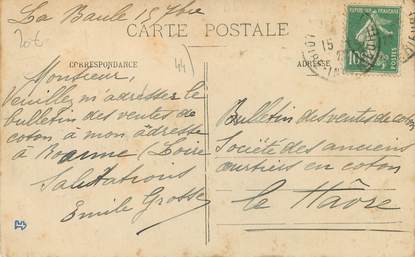 La Baule 15 7bre
CARTE POSTALE
20t
(44)
CORRESPONDANCE
ADRESSE
Monsieur,
Veuillez m'adresser le
bulletin des ventes de
coton à mon adresse
à Roanne (Loire
Salutations
Emile Grosse
Bulletin des ventes de coton
Société des anciens
courtiers en coton
le Hâvre
15
10
POSTES